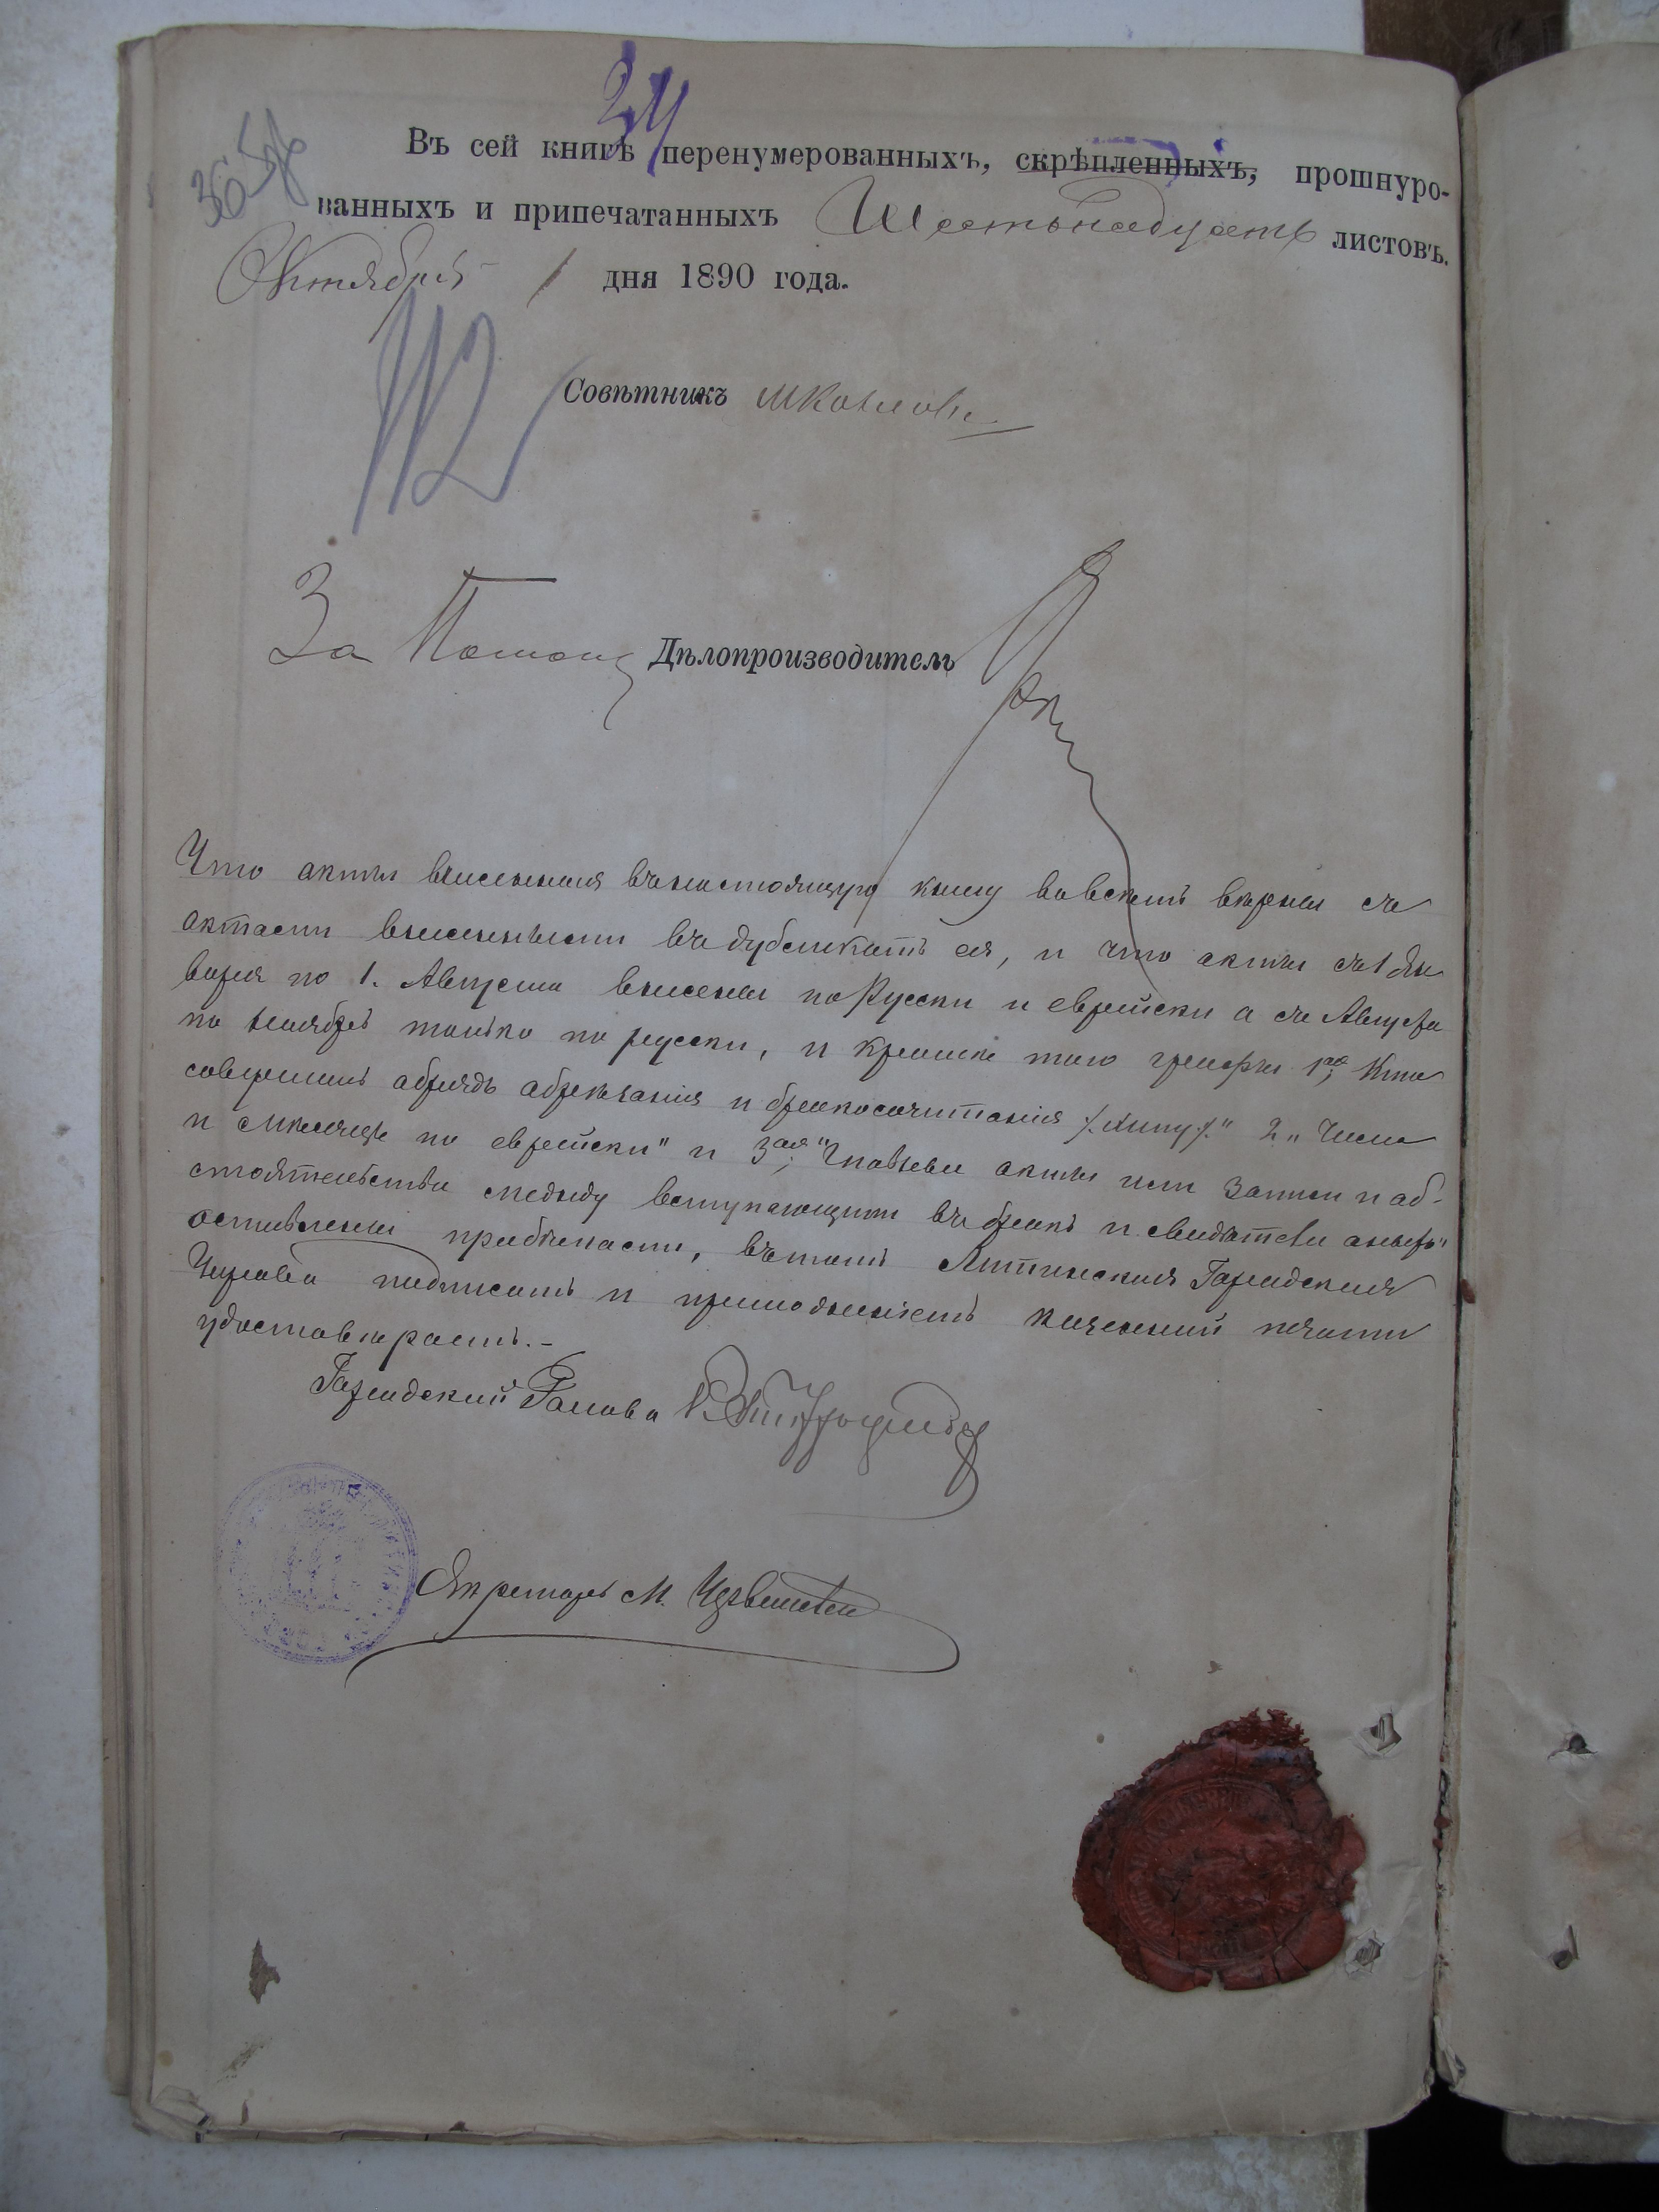 34
Въ сей книгѣ перенумерованныхъ, скрѣпленныхъ, прошнуро-
ванныхъ и припечатанныхъ Шестьнадцать листовъ.
Октября 1 дня 1890 года.
112
Совѣтникъ
За Помощ Дѣлопроизводитель
Что акты внесенныя въ настоящую книгу вовсемъ верны съ
актами внесенными въ дубликатъ ея, и что акты съ 1 Ян
варя по 1. Августа внесены по Русски и еврейски а съ Августа
по Ноябрь только по русски, и кромѣ того графы 1ая, Кто
совершилъ обрядъ обрезанія и бракосочитанія /:хипу:/" 2 " Число
и Мѣсяцъ по еврейски" и 3ая "Главные акты или записи и об-
стоятельства между вступающими въ бракъ и
оставлены пробѣлами, въ томъ Городская
Управа подписомъ и приложеніемъ казенной печати
удостовѣряетъ.-
Городский Голова
Секретарь М.